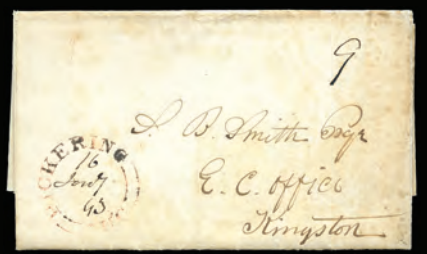 9
S. B. Smith Esqr
E. C. Office
Kingston
PICKERING
16
Jany
43